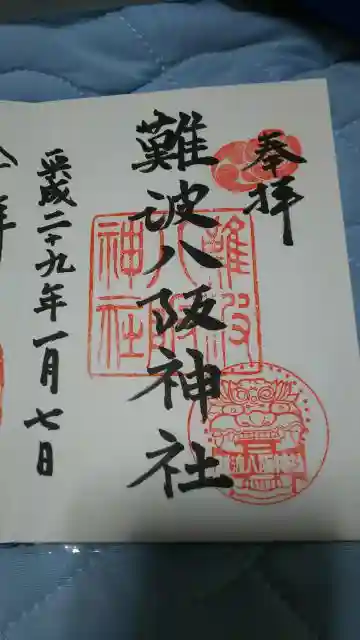 奉拝
難波八阪神社
平成二十九年一月七日
難波
八阪
神社